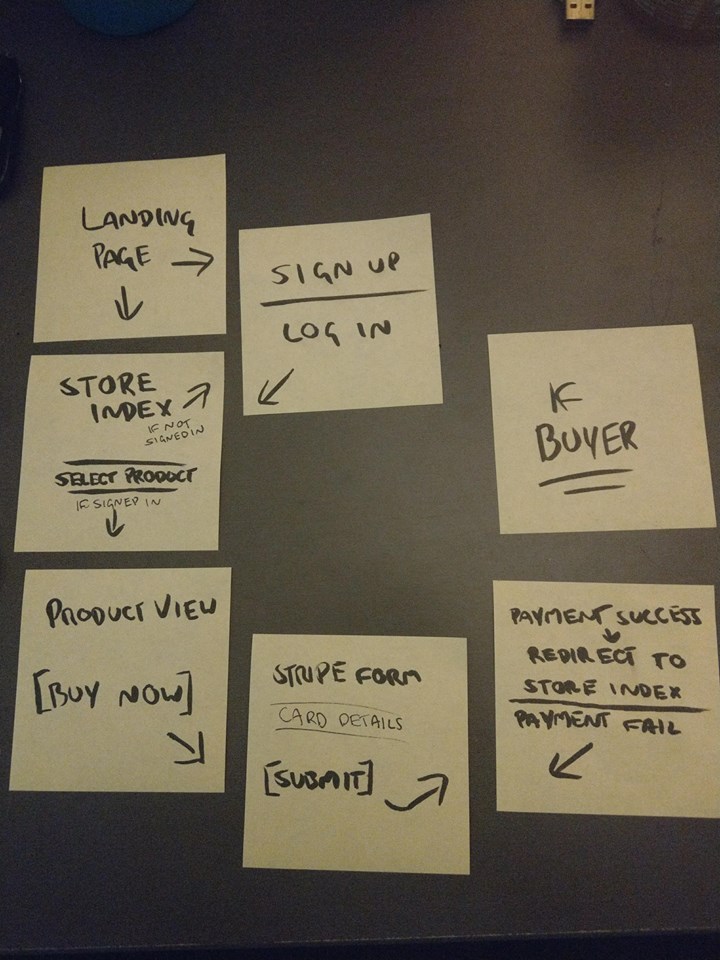 LANDING
PAGE →
↓
SIGN UP
LOG IN
↙
STORE
INDEX ↗
IF NOT
SIGNED IN
SELECT PRODUCT
IF SIGNED IN
↓
IF
BUYER
PRODUCT VIEW
[BUY NOW]
↘
STRIPE FORM
CARD DETAILS
[SUBMIT] ↗
PAYMENT SUCCESS
↓
REDIRECT TO
STORE INDEX
PAYMENT FAIL
↙